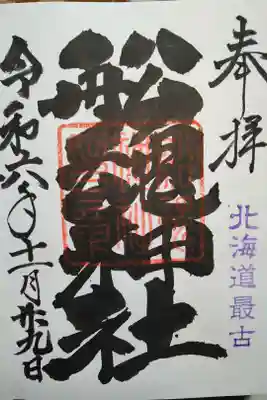 奉拝
北海道最古
船魂神社
令和六年十一月廿九日